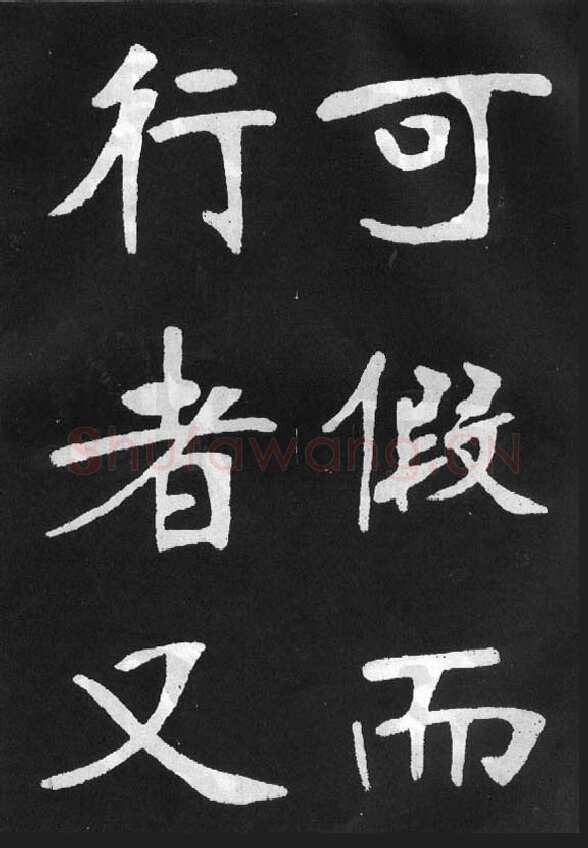 可假而
行者又
Shufawang.CN